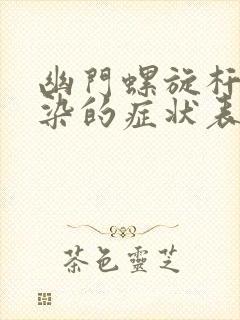 幽門螺旋杆
染的症狀表
茶色靈芝